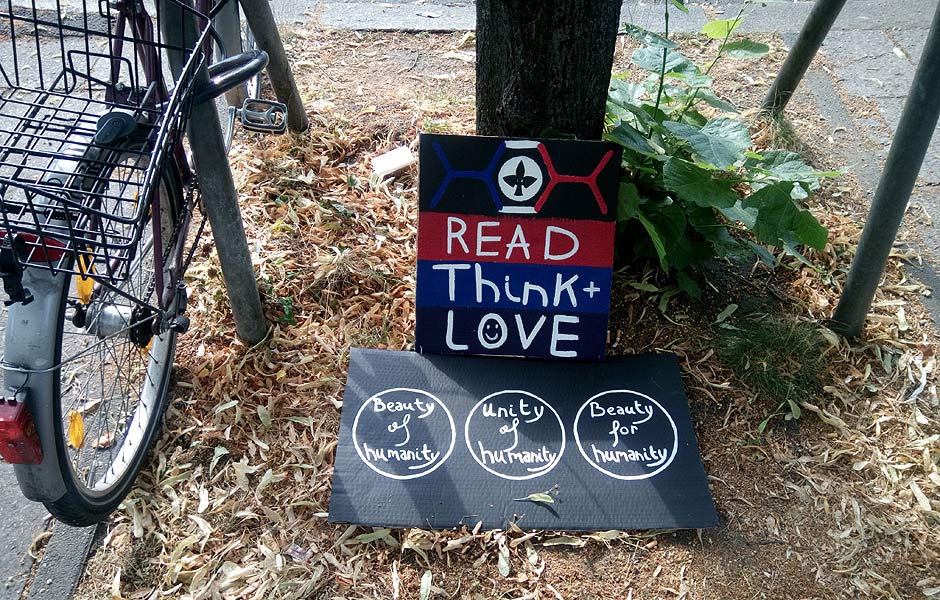 READ
Think+
LOVE
Beauty
of
humanity
Unity
of
humanity
Beauty
for
humanity